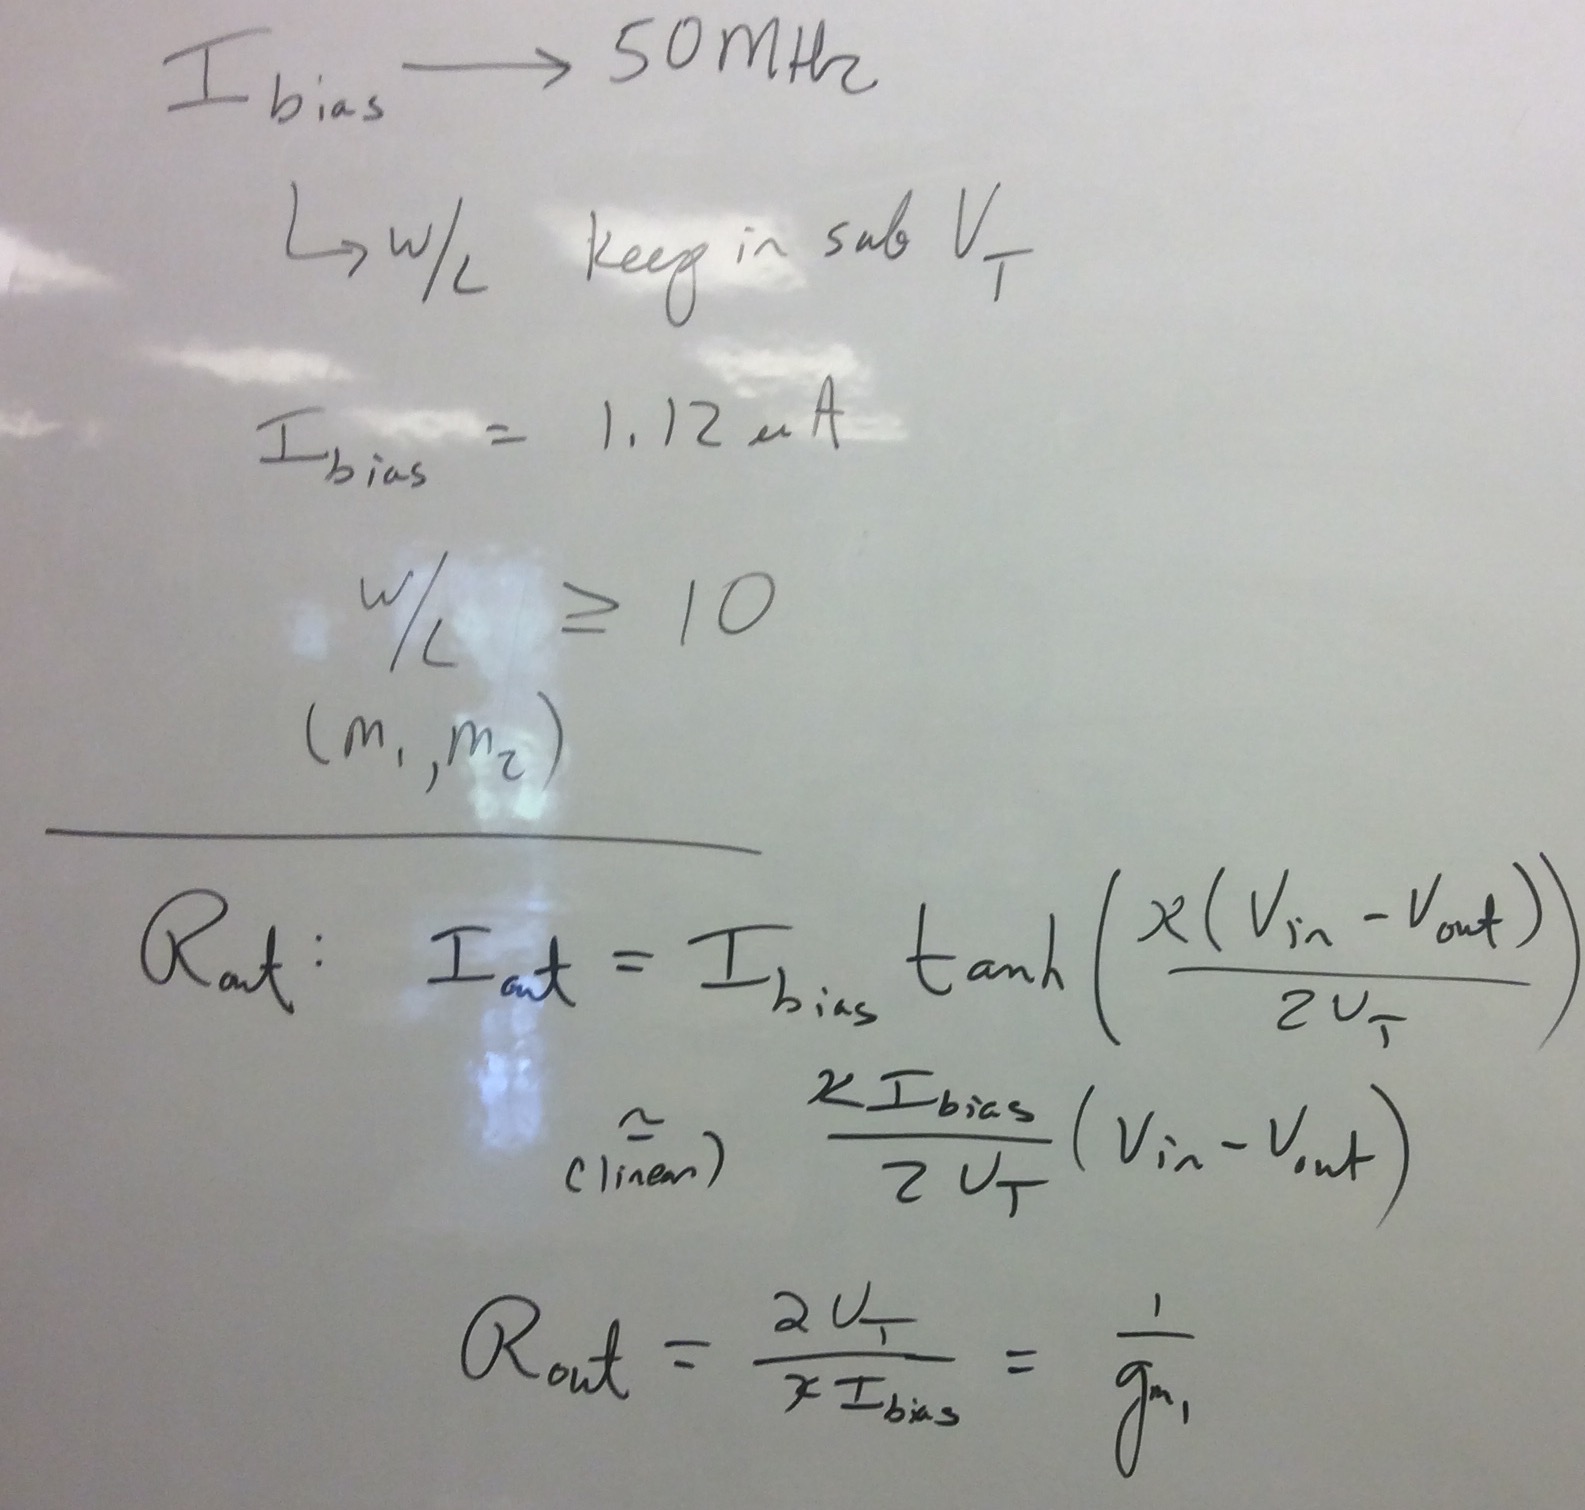 I_bias → 50MHz
↳ W/L keep in sub V_T
I_bias = 1.12 μA
W/L ≥ 10
(M_1, M_2)
R_out: I_out = I_bias tanh(κ(V_in - V_out) / 2U_T)
≃ (linear) κI_bias / 2U_T (V_in - V_out)
R_out = 2U_T / κI_bias = 1 / g_m1